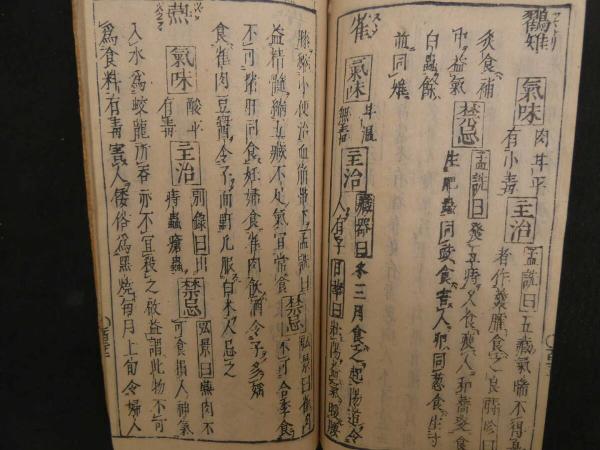 鸐雉
氣味
肉平
有小毒
主治
孟詵曰五藏氣喘不得息
者作羹臛食之
炙食補
中益氣
禁忌
孟詵曰發五痔久食瘦人和蕎麥食
生肥蟲同
食害人
同葱食生寸
白蟲餘
並同雉
雀
氣味
無毒
主治
藏器曰冬三月食之起陽道令
人有子日華曰壯陽益氣暖腰
膝縮小便治血崩帶下孟詵曰
益精髓續五藏不足氣宜常食
禁忌
弘景曰雀肉
不可合李食
不可
諸肝同食妊婦食雀肉飲酒令子多婬
食雀肉豆醬令子面䵟凡服白朮人忌之
燕
氣味
酸平
有毒
主治
別錄曰出
痔蟲瘡蟲
禁忌
弘景曰燕肉不
可食損人神氣
入水爲蛟龍所吞亦不宜殺之
益謂此物不可
爲食料有毒害人倭俗爲黑燒每月上旬令婦人